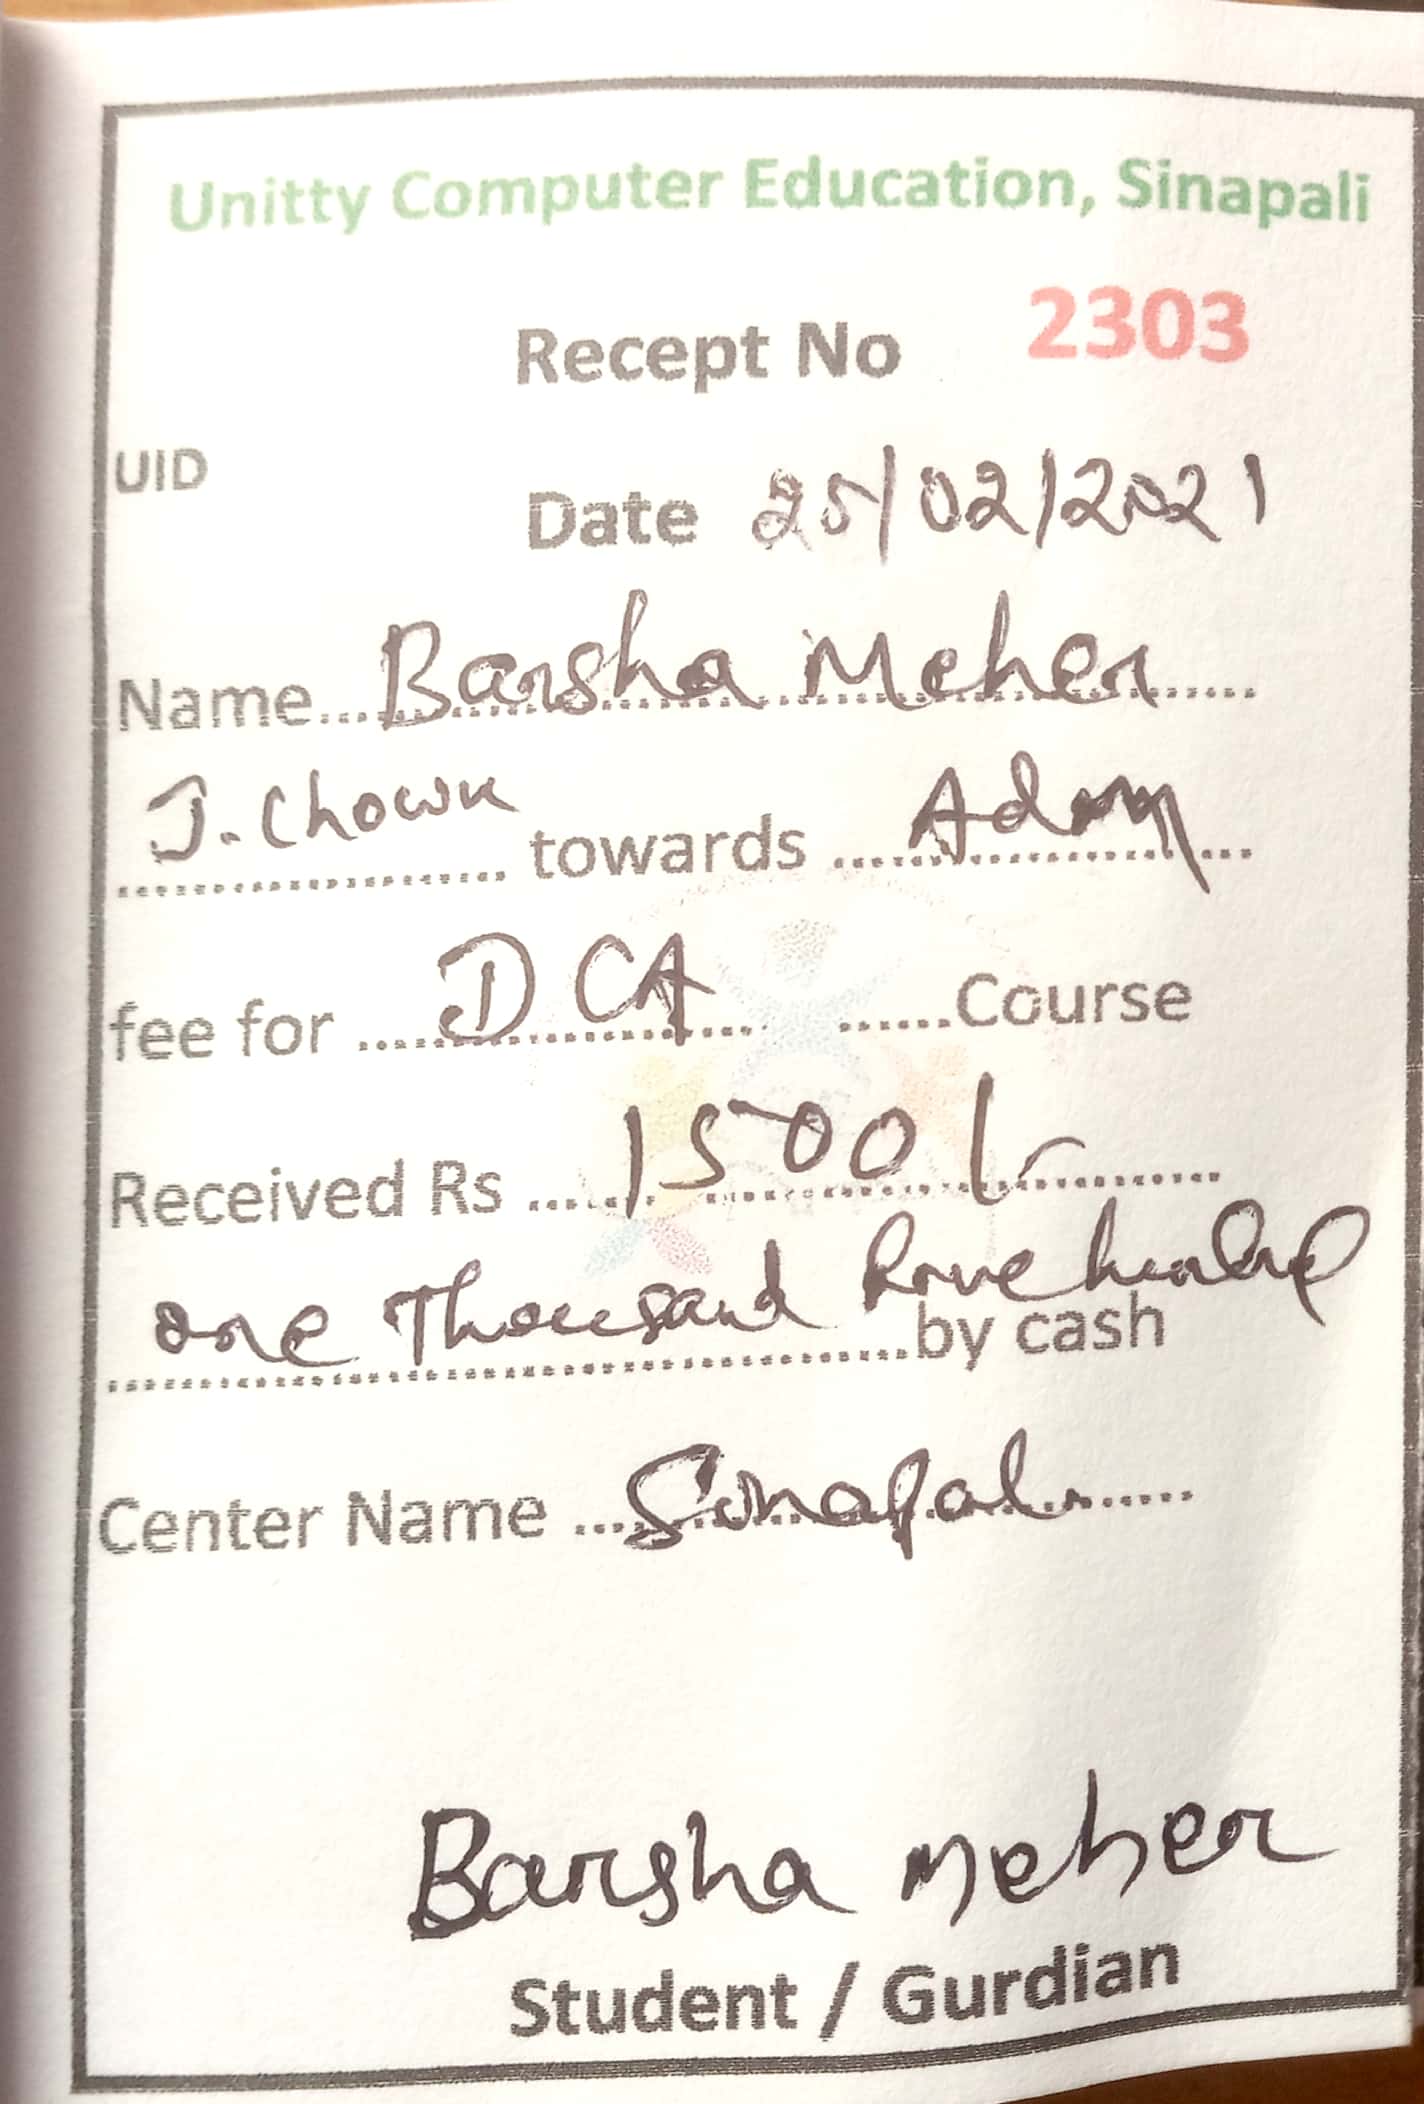 Unitty Computer Education, Sinapali
Recept No 2303
UID
Date 25/02/2021
Name... Barsha Meher
J. Chowk towards Adm
fee for DCA Course
Received Rs 1500/-
one Thousand five hundred by cash
Center Name Sinapali
Barsha Meher
Student / Gurdian